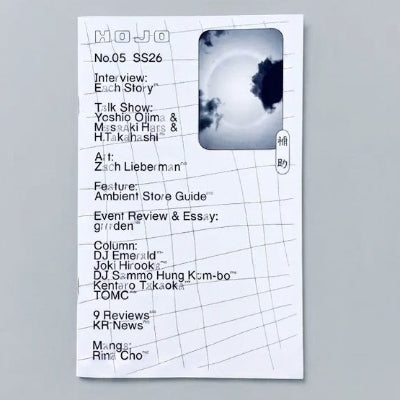 HOJO
No.05 SS26
Interview:
Each Story
Talk Show:
Yoshio Ojima &
Masaaki Hara &
H.Takahashi
Art:
Zach Lieberman
Feature:
Ambient Store Guide
Event Review & Essay:
grrrden
Column:
DJ Emerald
Joki Hirooka
DJ Sammo Hung Kam-bo
Kentaro Takaoka
TOMC
9 Reviews
KR News
Manga:
Rina Cho
補助